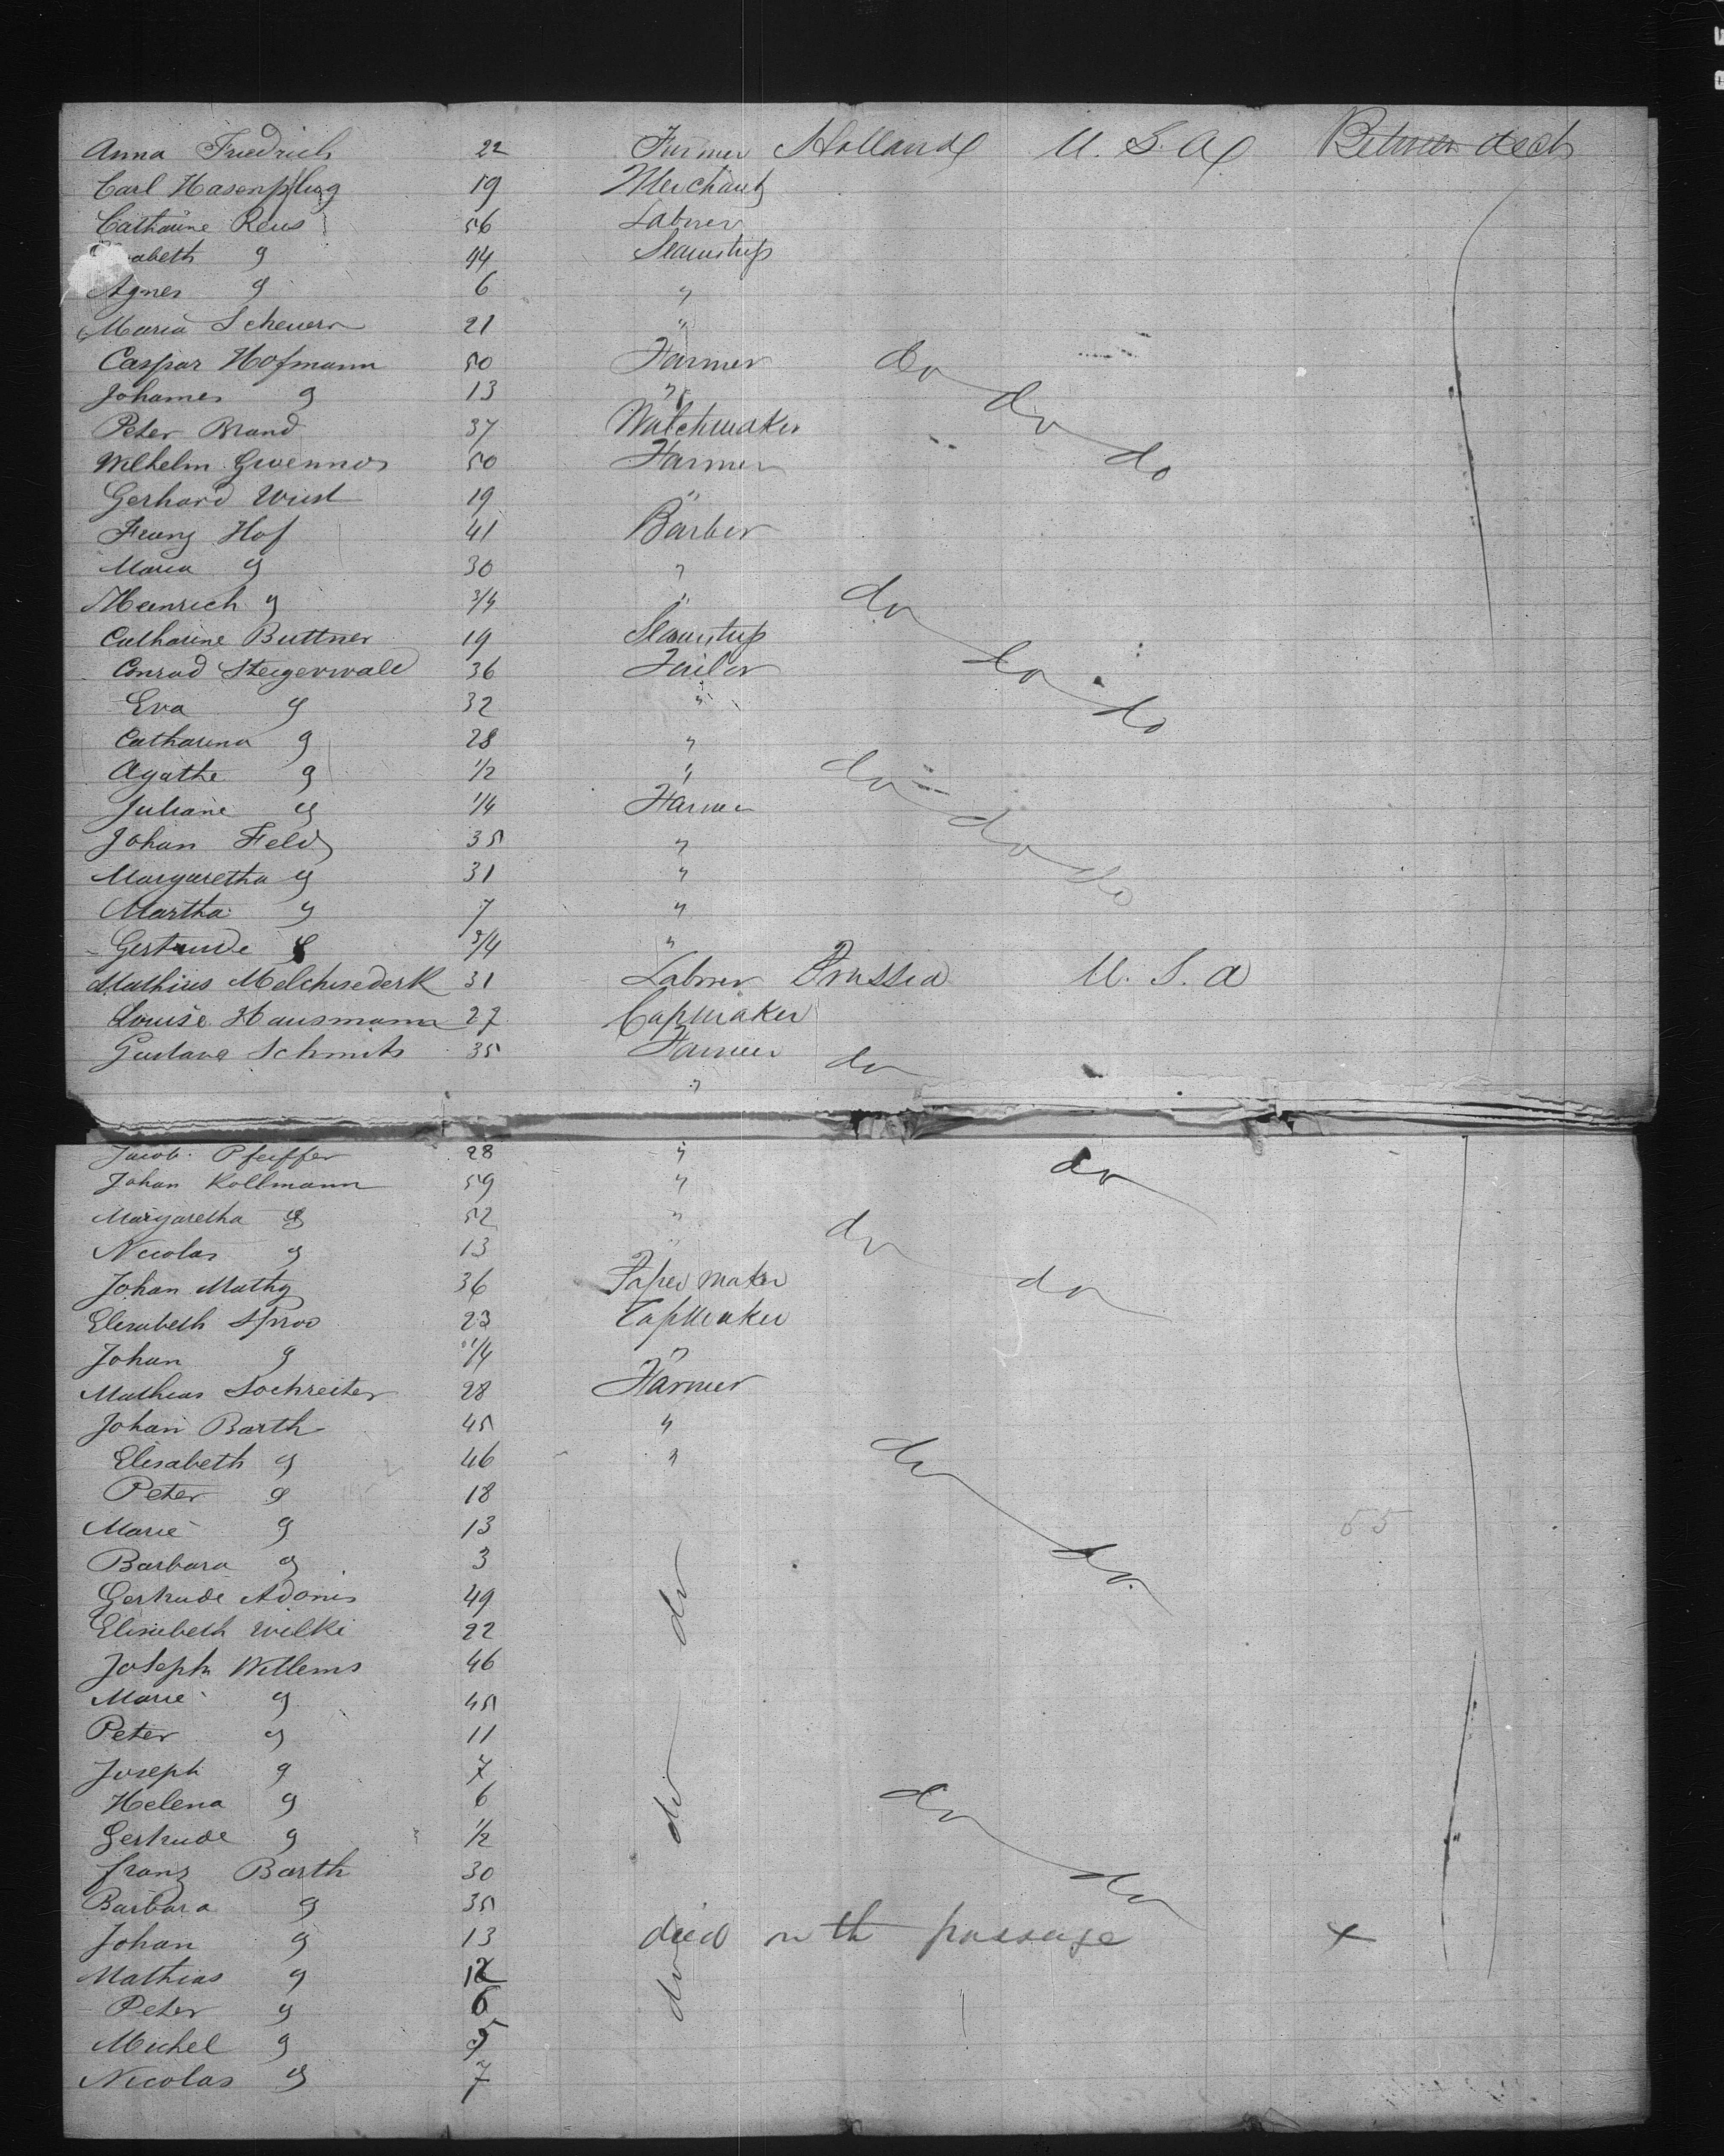 Anna Friedrich 22 Farmer Holland U. S. A Between deck
Carl Hasenpflug 19 Merchant
Catharine Reus 56 Labrer
abeth " 44 Seamstrss
Agnes " 6 "
Maria Scheuern 21 "
Caspar Hofmann 50 Farmer do
Johannes " 13 " do
Peter Brand 37 Watchmaker
Wilhelm 50 Farmer do
Gerhard Wust 19 "
Franz Hof 41 Barber
Maria " 30 "
Heinrich " 3/4 " do
Catharine Buttner 19 Seamstrss
Conrad Steigerwald 36 Tailor do
Eva " 32 " do
Catharina " 28 "
Agathe " 1/2 " do
Juliane " 1/4 Farmer do
Johan Feld 35 "
Margaretha " 31 " do
Martha " 7 "
Gertrude " 3/4 "
Mathias Melchisederk 31 Labrer Prussia U. S. A
Louise Hausmann 27 Capmaker
Gustave Schmits 35 Farmer do
"
Jacob Pfeiffer 28 " do
Johan Kollmann 59 "
Margaretha " 52 " do
Nicolas " 13 "
Johan Mathy 36 Paper maker do
Elisabeth 23 Capmaker
Johan " 1/4 "
Mathias Lochreiter 28 Farmer
Johan Barth 45 "
Elisabeth " 46 " do
Peter " 18
Marie " 13
Barbara " 3 do
Gertrude Adonis 49 do
Elisabeth Wilki 22
Joseph Willems 46
Marie " 45
Peter " 11
Joseph " 7
Helena " 6 do do
Gertrude " 1/2
Franz Barth 30 do
Barbara " 35
Johan " 13 died on th passage x
Mathias " 12 do
Peter " 6
Michel " 5
Nicolas " 7
55